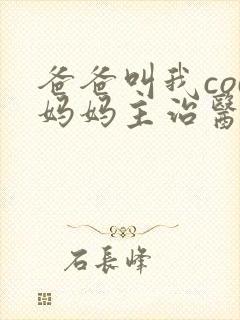 爸爸叫我co
妈妈主治醫
石長峰